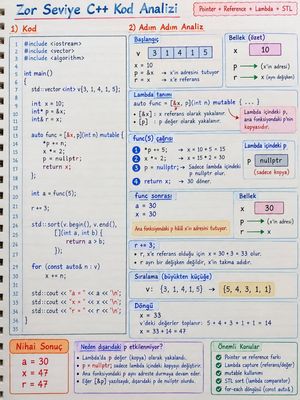 Zor Seviye C++ Kod Analizi
Pointer + Reference + Lambda + STL
1) Kod
1 #include <iostream>
2 #include <vector>
3 #include <algorithm>
int main()
{
std::vector<int> v{3, 1, 4, 1, 5};
int x = 10;
int* p = &x;
int& r = x;
auto func = [&x, p](int n) mutable {
*p += n;
x *= 2;
p = nullptr;
return x;
};
int a = func(5);
r += 3;
std::sort(v.begin(), v.end(),
[](int a, int b) {
return a > b;
});
for (const auto& n : v)
x += n;
std::cout << "a = " << a << '\n';
std::cout << "x = " << x << '\n';
std::cout << "r = " << r << '\n';
}
2) Adım Adım Analiz
Başlangıç
v 3 1 4 1 5
x = 10
p = &x → x'in adresini tutuyor
r = x → x'e referans
Bellek (özet)
x 10
p → x (adresi)
r → x (aynı değişken)
Lambda tanımı
auto func = [&x, p](int n) mutable { ... }
• [&x] : x referans olarak yakalanır.
• [p] : p değer olarak yakalanır.
Lambda içindeki p,
ana fonksiyondaki p'nin
kopyasıdır.
func(5) çağrısı
1 *p += 5; → x = 10 + 5 = 15
2 x *= 2; → x = 15 * 2 = 30
3 p = nullptr; → Sadece lambda içindeki
p nullptr olur.
4 return x; → 30 döner.
Lambda içindeki p
p nullptr
(sadece kopya)
func sonrası
a = 30
x = 30
Ana fonksiyondaki p hâlâ x'in adresini tutuyor.
Bellek
x 30
p → x
r → x
r += 3;
• r, x'e referans olduğu için x = 30 + 3 = 33 olur.
• r ayrı bir değişken değildir, x'in takma adıdır.
Sıralama (büyükten küçüğe)
v: {3, 1, 4, 1, 5} → {5, 4, 3, 1, 1}
Döngü
x = 33
v'deki değerler toplam: 5 + 4 + 3 + 1 + 1 = 14
x = 33 + 14 = 47
Nihai Sonuç
a = 30
x = 47
r = 47
Neden dışarıdaki p etkilenmiyor?
• Lambda'da p değer (kopya) olarak yakalandı.
• p = nullptr; sadece lambda içindeki kopyayı değiştirir.
• Ana fonksiyondaki p aynı adreste durmaya devam eder.
• Eğer [&p] yazılsaydı, dışarıdaki p de nullptr olurdu.
Önemli Konular
✓ Pointer ve referans farkı
✓ Lambda capture (referans/değer)
✓ mutable kullanımı
✓ STL sort (lambda comparator)
✓ for-each döngüsü (const auto&)